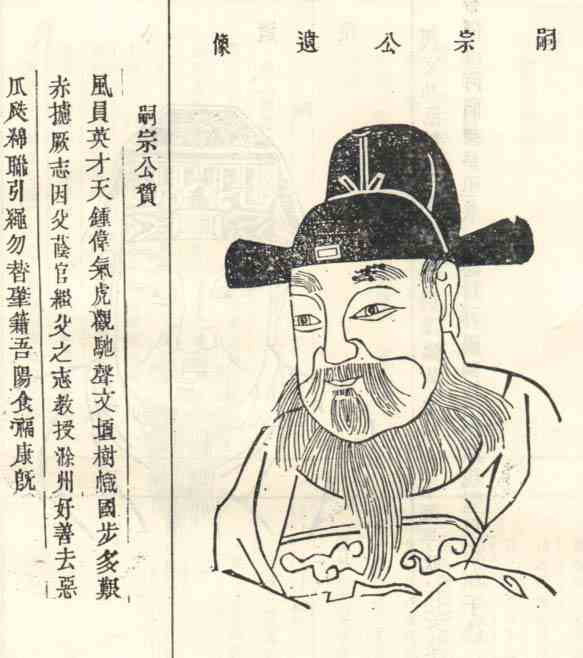 嗣宗公遺像
嗣宗公贊
風員英才天鍾偉氣虎觀馳聲文壇樹幟國步多艱
赤攄厥志因父蔭官繼父之志教授滁州好善去惡
瓜瓞綿聯引繩勿替肇籍吾陽食福康旣